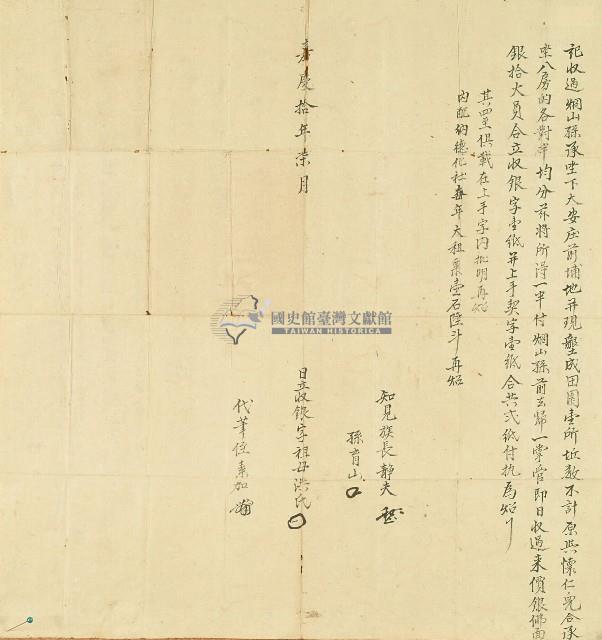 記收過烱山孫承坐下大安庄前埔地并現墾成田園壹所坵數不計原與懷仁兜合承
坐八房的各對半均分茲將所得一半付烱山孫前去歸一掌管即日收過來價銀佛面
銀拾大員合立收銀字壹紙并上手契字壹紙合共弍紙付执為炤
其四至俱載在上手字内批明再炤
内配納德化社每年大租粟壹石陸斗再炤
知見族長靜夫
孫育山
嘉慶拾年柒月 日立收銀字祖母洪氏
代筆侄素加
國史館臺灣文獻館
TAIWAN HISTORICA